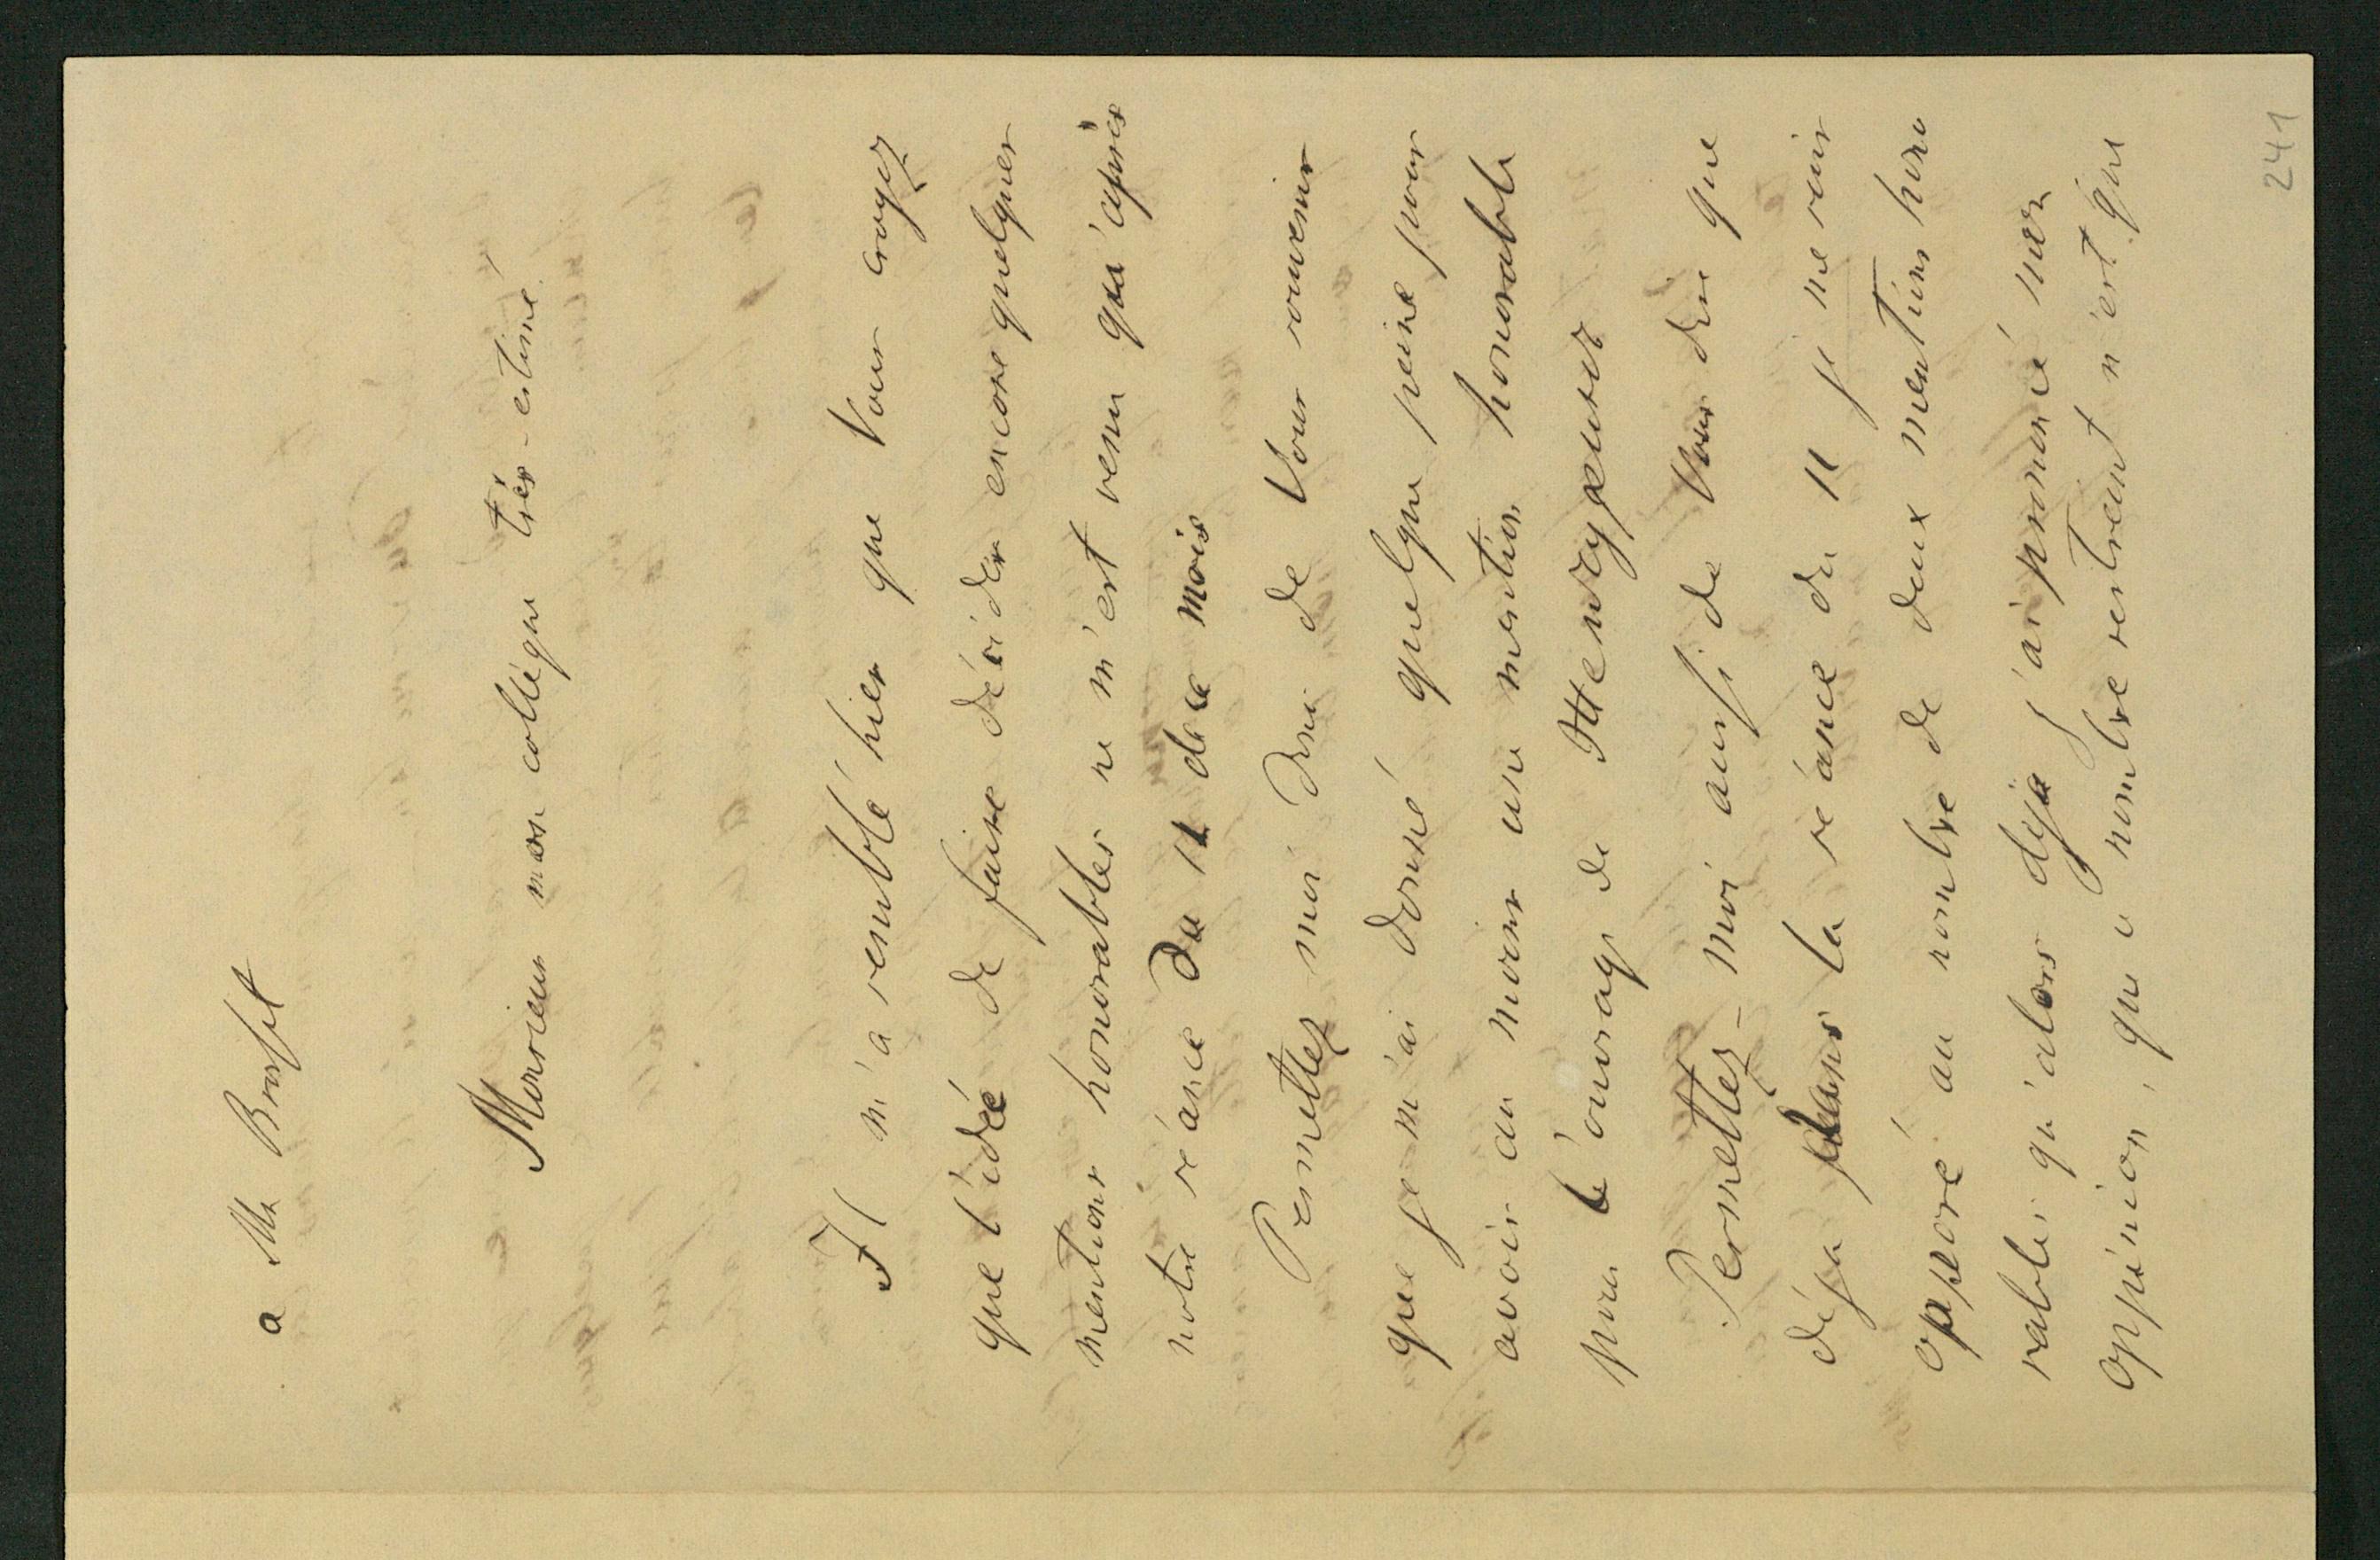 a Mr Brosset
Monsieur mon collègue très-estimé
Il m'a semblé hier que Vous croyez
que l'idée de faire décider encore quelques
mentions honorables ne m'est venu qu'après
notre séance du 11 de ce mois
Permettez moi donc de Vous souvenir
que je m'ai donné quelque peine pour
avoir au moins une mention honorable
pour l'ouvrage de
Permettez-moi aussi de Vous dire que
déja dans la séance du 11 je me suis
opposé au nombre de deux mentions hono
rables qu'alors déja j'ai prononcé mon
oppinion, que ce nombre restreint n'est que
241